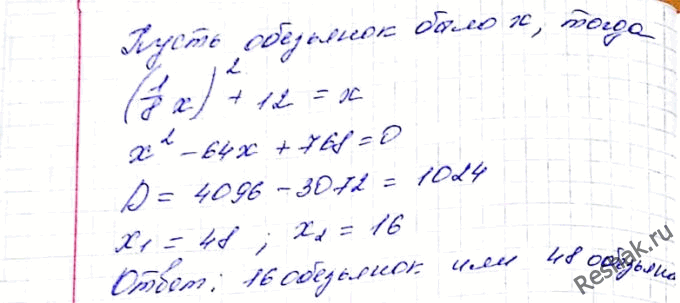 Пусть обезьянок было x, тогда
(1/8 x)² + 12 = x
x² - 64x + 768 = 0
D = 4096 - 3072 = 1024
x₁ = 48 ; x₂ = 16
Ответ: 16 обезьянок или 48 обезьяна
Reshak.ru